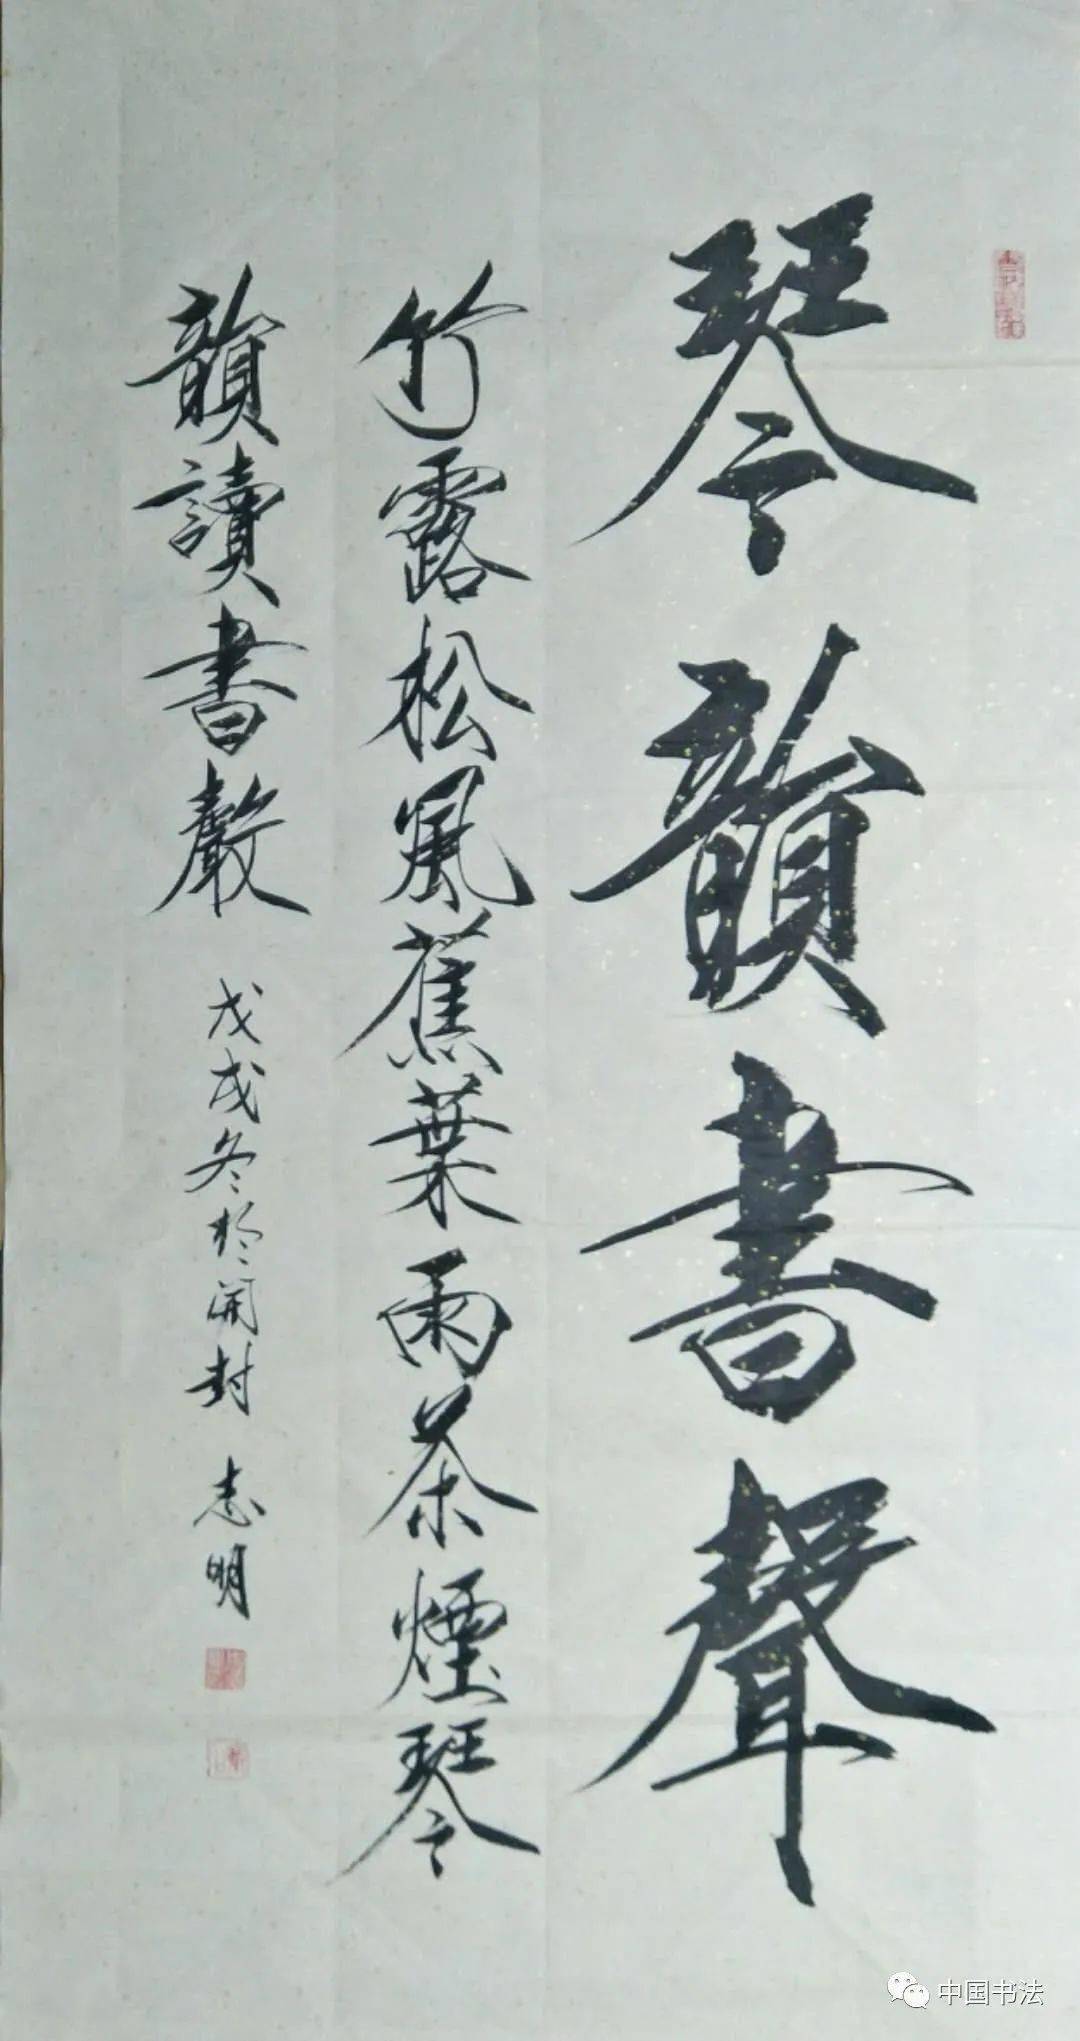 琴韻書聲
竹露松風蕉葉雨茶煙琴
韻讀書聲
戊戌冬於開封 志明
中国书法